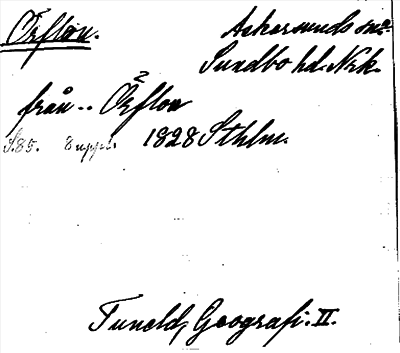 Örflon.
Askersunds sn.
Sundbo hd. Nrk.
från .. Örflon
S. 85. 8 uppl. 1828 Sthlm.
Tuneld, Geografi. II.